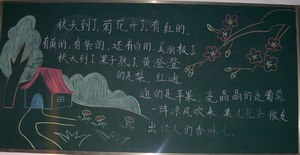 秋天到了,菊花开了,有红的,
有黄的,有紫的,还有白的,美丽极了
秋天到了,果子熟了,黄澄澄
的是梨,红通
通的是苹果,亮晶晶的是葡萄
一阵凉风吹来 果儿点头散发
出诱人的香味儿